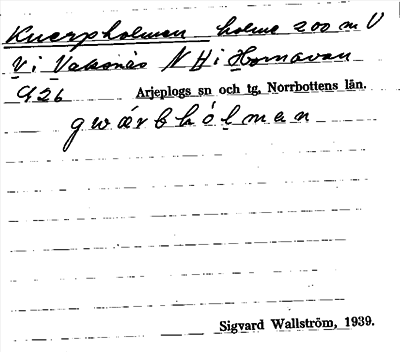 Knerpholmen holme 200 m V
V i Vaksnäs N H i Hornavan
926 Arjeplogs sn och tg, Norrbottens län.
gwárbhólman
Sigvard Wallström, 1939.